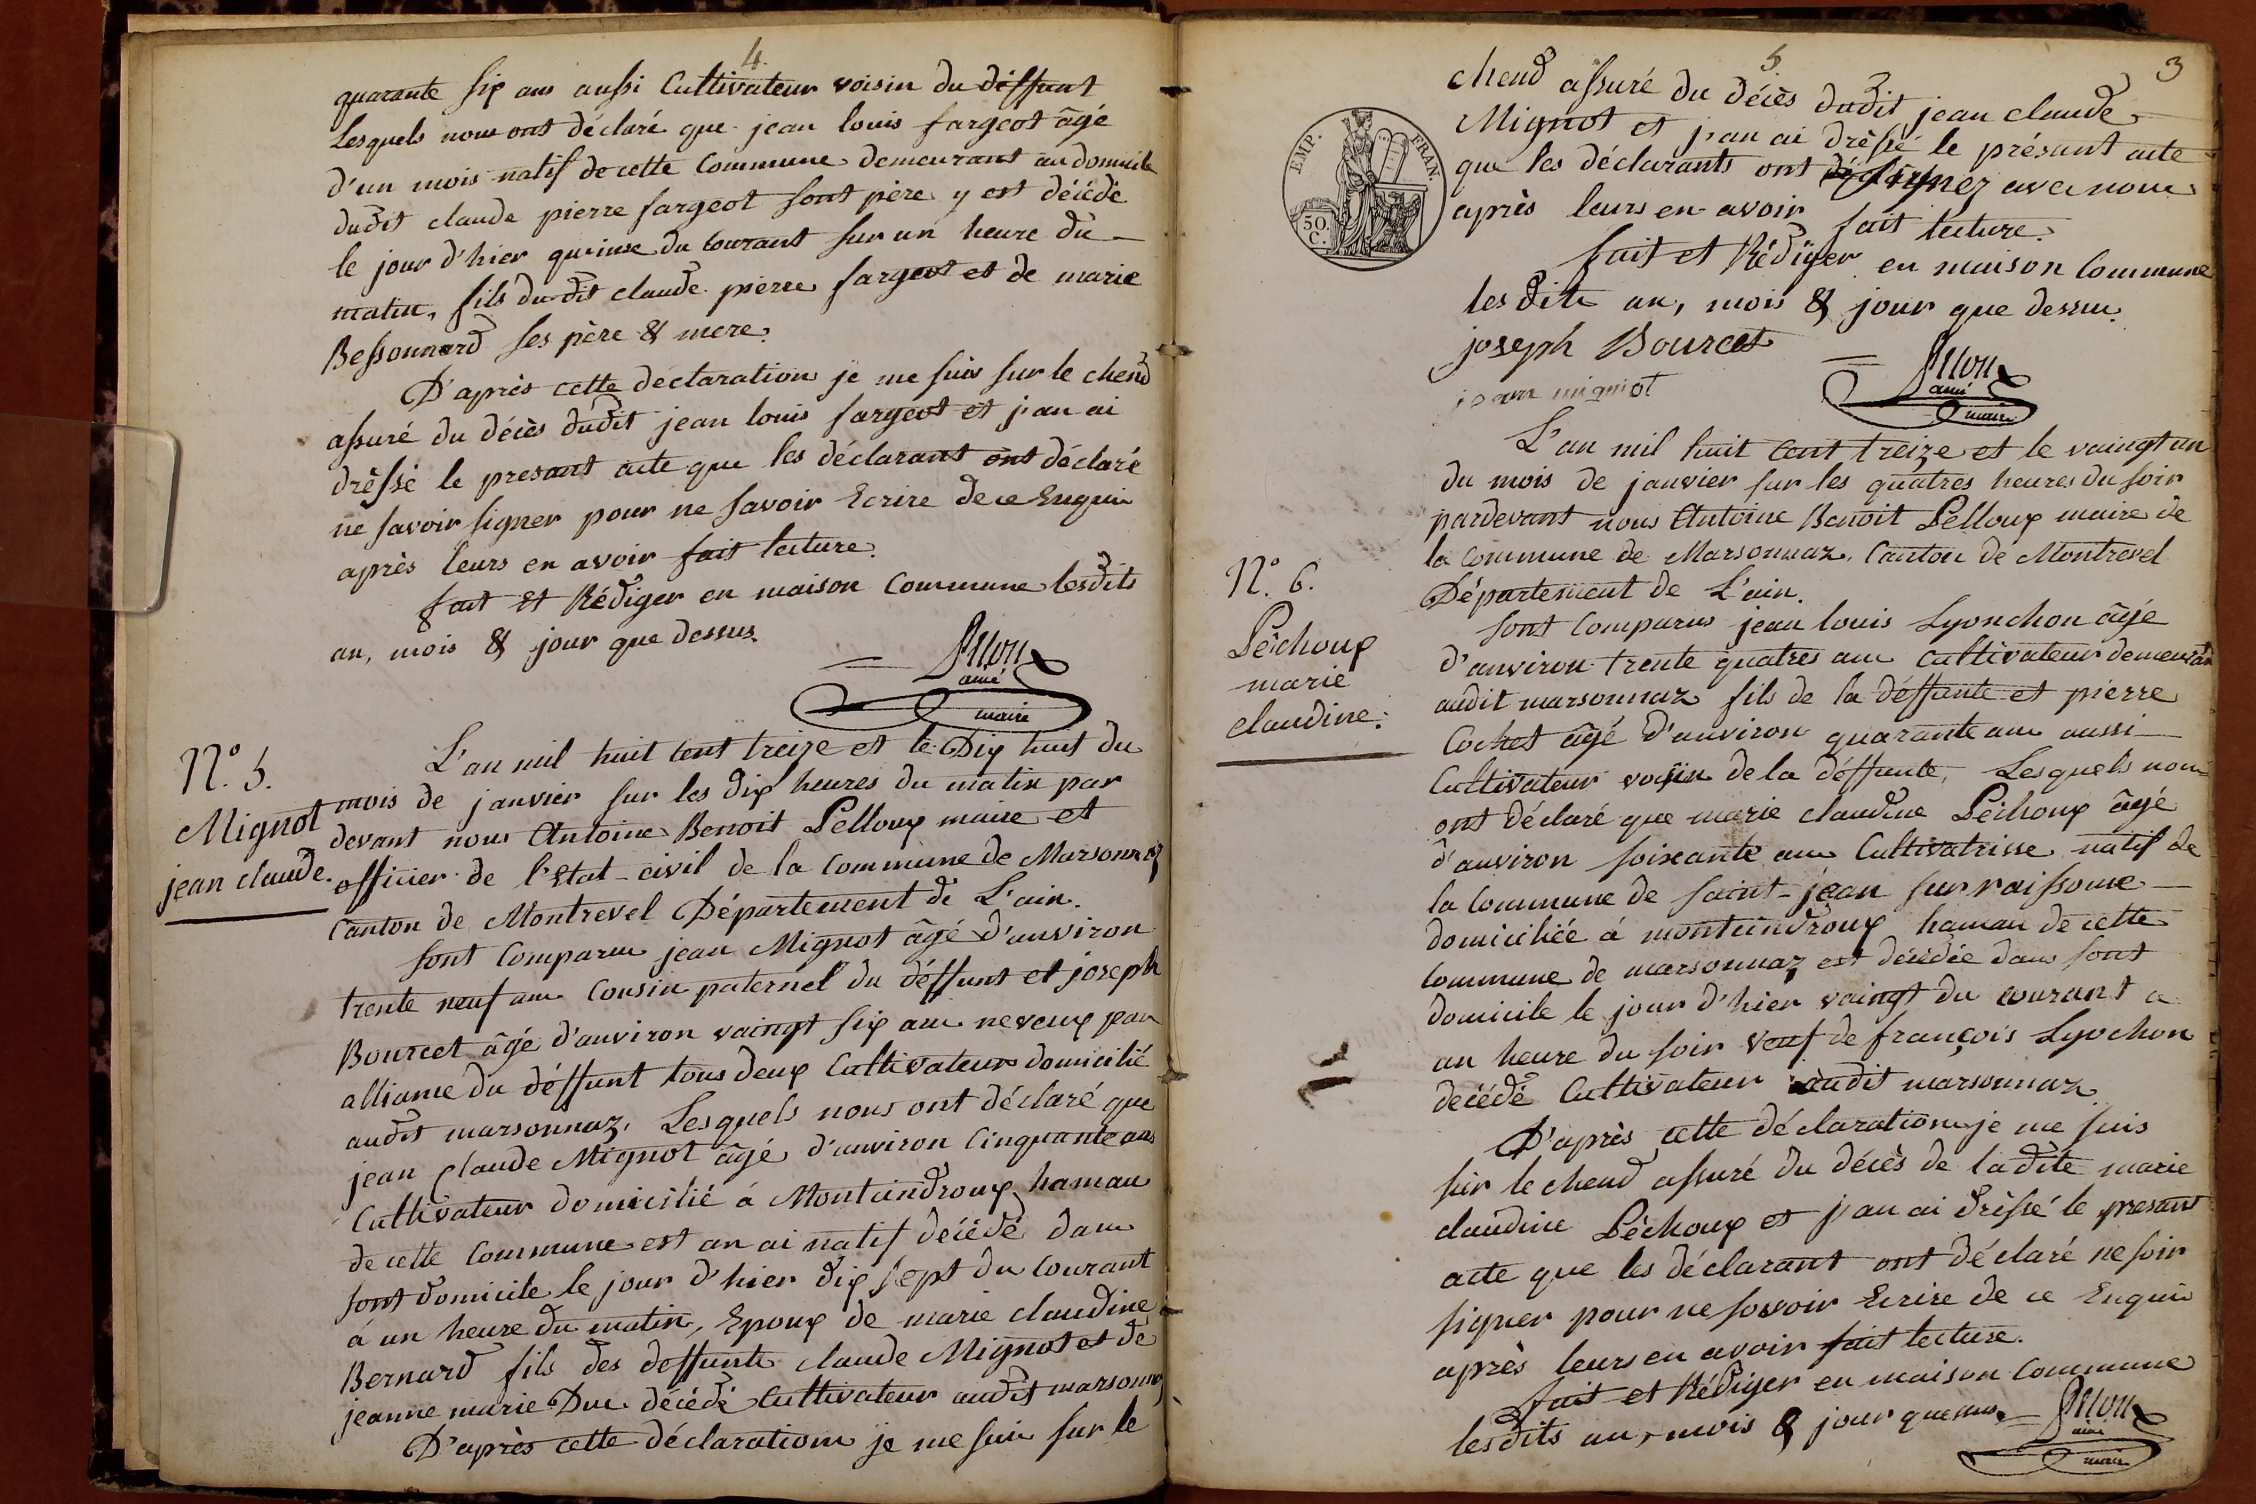 4.
quarante six ans aussi Cultivateur voisin du déffunt
Lesquels nous ont déclaré que jean louis fargeot âgé
d'un mois natif de cette Commune demeurant au domicile
dudit claude pierre fargeot sont père y est décédé
le jour d'hier quinse du courant sur un heure du
matin, fils dudit claude pierre fargeot et de marie
Bessonnard ses père & mere.
D'après cette déclaration je me suis sur le chend
assuré du décès dudit jean louis fargeot et j'an ai
dréssé le presant acte que les déclarant ont déclaré
ne savoir signer pour ne savoir Ecrire de ce Enquis
après leurs en avoir fait lecture.
fait et Rédiger en maison Commune lesdits
an, mois & jour que dessus.
ainé
maire
N.° 5.
Mignot
jean claude.
L'an mil huit cent treize et le Dix huit du
mois de janvier sur les dix heures du matin par
devant nous Antoine Benoit Pelloux maire et
officier de l'Etat-civil de la commune de Marsonnaz
Canton de Montrevel Département de L'ain.
Sont Comparus jean Mignot âgé d'anviron
trente neuf ans Cousin paternel du déffunt et joseph
Bourcet âgé d'anviron vaingt six ans neveux par
alliance du déffunt tous deux Cultivateur domicilié
audit marsonnaz, Lesquels nous ont déclaré que
jean Claude Mignot âgé d'anviron Cinquante ans
Cultivateur domicilié à Montcindroux hamau
de cette Commune est an ai natif décédé dans
sont domicile le jour d'hier dix sept du Courant
à un heure du matin, Epoux de marie claudine
Bernard fils des deffunts claude Mignot et de
jeanne marie Duc décédé Cultivateur audit marsonnaz
D'après cette déclaration je me suis sur le
5.
3
EMP. FRAN.
50 C.
chend assuré du décès dudit jean claude
Mignot et j'an ai dréssé le présant acte
que les déclarants ont signez avec nous
après leurs en avoir fait lecture.
fait et Rédiger en maison Commune
les dits an, mois & jour que dessus.
joseph Bourcet
jean mignot
ainé
maire
N.° 6.
Péchoux
marie
claudine.
L'an mil huit cent treize et le vaingt un
du mois de janvier sur les quatres heures du soir
pardevant nous Antoine Benoit Pelloux maire de
la commune de Marsonnaz, Canton de Montrevel
Département de L'ain.
Sont Comparus jean louis Lyonchon âgé
d'anviron trente quatres ans Cultivateur demeurant
audit marsonnaz fils de la déffunte et pierre
Cochet âgé d'anviron quarante ans aussi
Cultivateur voisin de la déffunte, Lesquels nous
ont déclaré que marie claudine Péchoux âgé
d'anviron soixante ans Cultivatrisse natif de
la Commune de Saint-jean sur raissouse
domiciliée à montcindroux hamau de cette
Commune de marsonnaz est décédée dans sont
domicile le jour d'hier vaingt du courant a
un heure du soir veuf de françois Lyochon
décédé Cultivateur audit marsonnaz
D'après cette déclaration je me suis
sur le chend assuré du décès de ladite marie
claudine Péchoux et j'an ai dréssé le presant
acte que les déclarant ont déclaré ne soir
signer pour ne savoir Ecrire de ce Enquis
après leurs en avoir fait lecture.
fait et Rédiger en maison Commune
lesdits an, mois & jour que
ainé
maire